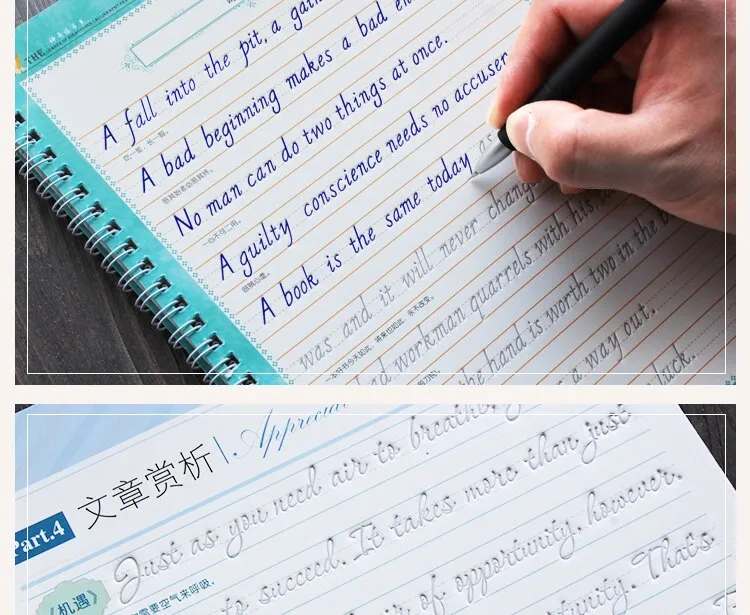 THE
A fall into the pit, a ga
吃一堑，长一智。
A bad beginning makes a bad en
恶其始者必恶其终。
No man can do two things at once.
一心不可二用。
A guilty conscience needs no accuser
做贼心虚。
A book is the same today as
was and it will never chang
一本好书今天如此，将来也如此，永不改变。
ad workman quarrels with his
the hand is worth two in the b
a way out.
luck.
文章赏析 Apprecia
Part.4
Just as you need air to breathe,
需要空气来呼吸，
to succeed. It takes more than just
《机遇》
air of opportunity, however.
tunity. That's